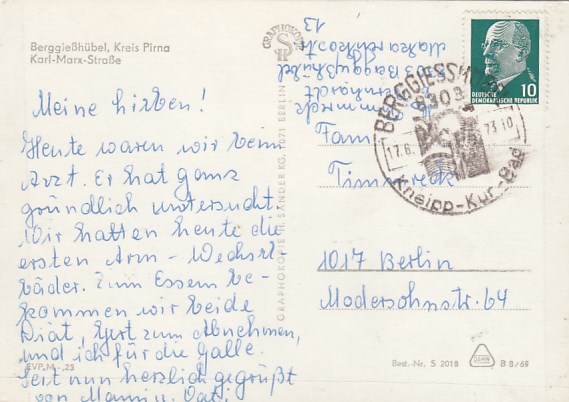 Berggießhübel, Kreis Pirna
Karl-Marx-Straße
Meine lieben!
Heute waren wir beim
Arzt. Er hat ganz
gründlich untersucht.
Wir hatten heute die
ersten Arm - Wechsel-
bäder. Zum Essen be-
kommen wir beide
Diät, Gert zum Abnehmen,
und ich für die Galle.
Seit nun herzlich gegrüßt
von Mami u. Vati.
EVP M -,23
GRAPHOKOPIE H. SANDER KG, 1071 BERLIN
GRAPHOKOPIE
Berggießhübel
13
DEUTSCHE
DEMOKRATISCHE REPUBLIK
10
BERGGIESSHÜBEL
8303
17.6. 73.10
Kneipp-Kur-Bad
Fam
Timmreck
1017 Berlin
Modersohnstr. 64
Best.-Nr. S 2018
B 8/69